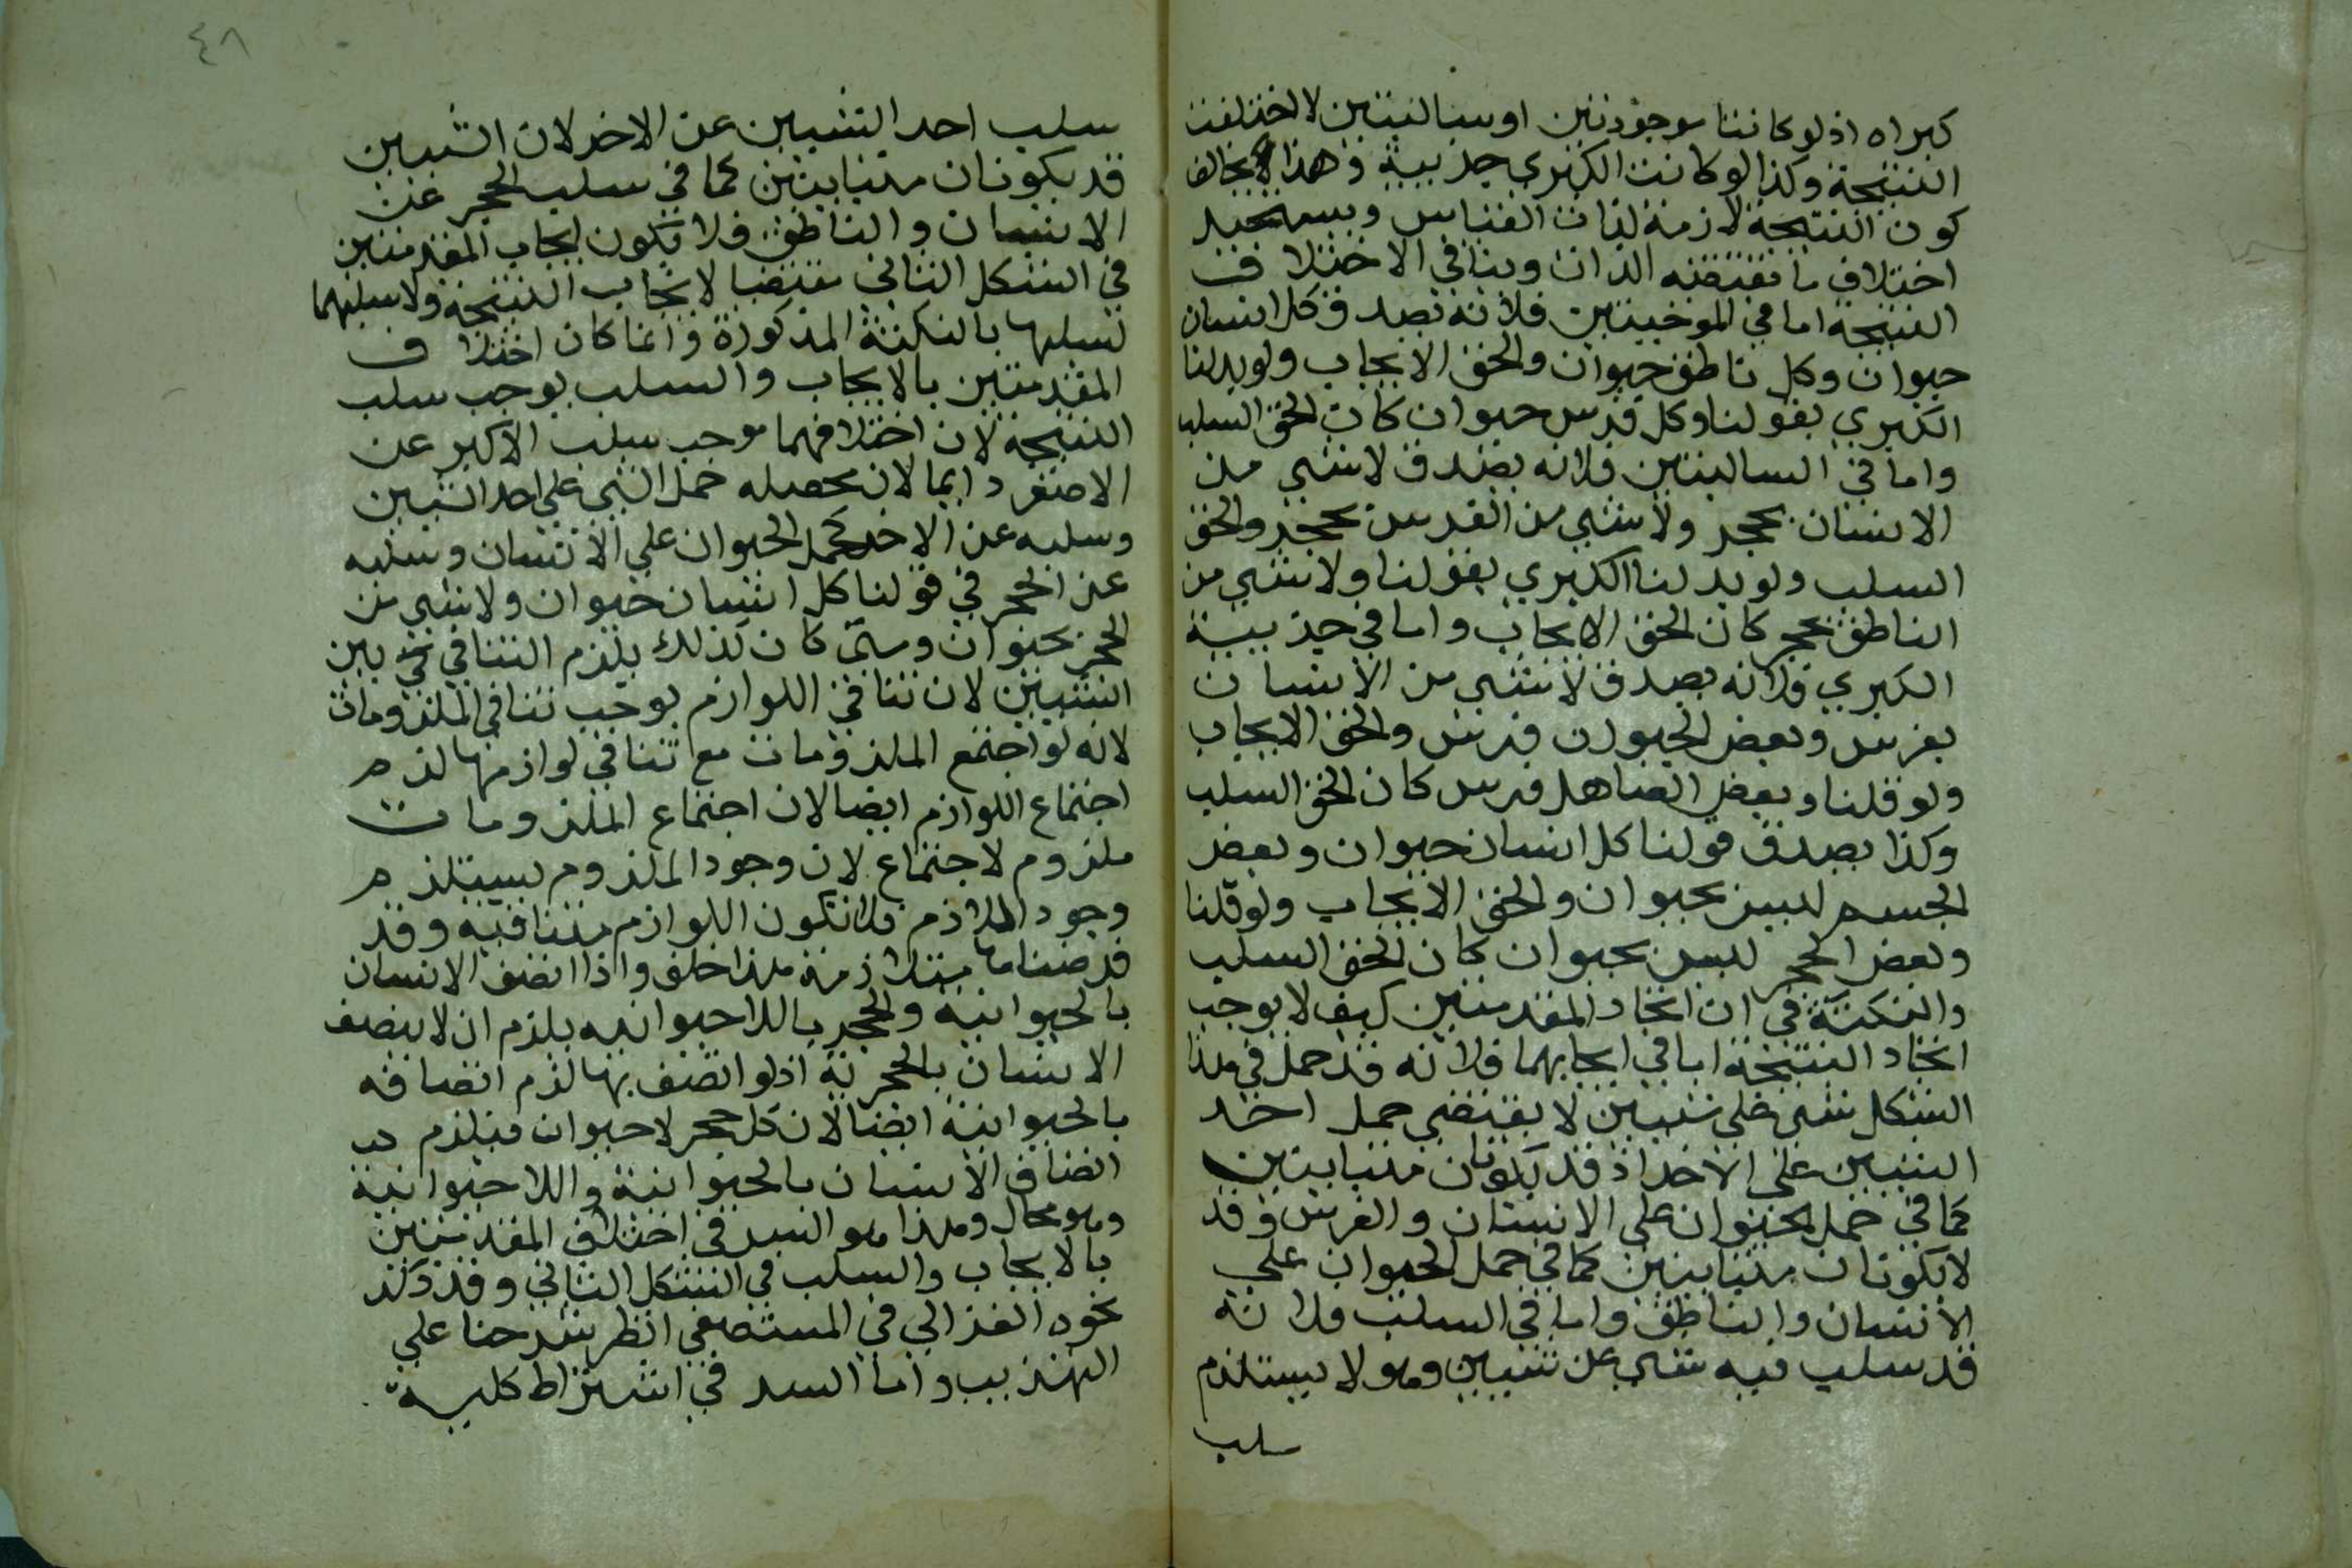 كبراه اذ لو كانتا موجودتين او سالبتين لاختلفت
النتيجة وكذا لو كانت الكبري جزيية وهذا يخالف
كون النتيجة لازمة لذات القياس ويستحيل
اختلاف ما تقتضيه الذات وينافي الاختلاف
النتيجة اما في الموجبتين فلانه تصدق كل انسان
حيوان وكل ناطق حيوان والحق الايجاب ولو بدلنا
الكبري بقولنا وكل فرس حيوان كان الحق السلب
واما في السالبتين فلانه يصدق لا شي من
الانسان بحجر ولا شي من الفرس بحجر والحق
السلب ولو بدلنا الكبري بقولنا ولا شي من
الناطق بحجر كان الحق الايجاب واما في جزيية
الكبري فلانه يصدق لا شي من الانسان
بفرس وبعض الحيوان فرس والحق الايجاب
ولو قلنا وبعض الصاهل فرس كان الحق السلب
وكذا يصدق قولنا كل انسان حيوان وبعض
الجسم ليس بحيوان والحق الايجاب ولو قلنا
وبعض الحجر ليس بحيوان كان الحق السلب
والنكتة في ان اتحاد المقدمتين كيف لا يوجب
اتحاد النتيجة اما في ايجابهما فلانه قد حمل في هذا
الشكل شي علي شيين لا يقتضي حمل احد
الشيين علي الاخر اذ قد يكونان متباينين
كما في حمل الحيوان علي الانسان والفرس وقد
لا يكونان متباينين كما في حمل الحيوان علي
الانسان والناطق واما في السلب فلانه
قد سلب فيه شي عن شيين وهو لا يستلزم
سلب
٤٨
سلب احد الشيين عن الاخر لان الشيين
قد يكونان متباينين كما في سلب الحجر عن
الانسان والناطق فلا تكون ايجاب المقدمتين
في الشكل الثاني مقتضيا لايجاب النتيجة ولا سلبهما
لسلبها بالنكتة المذكورة وانما كان اختلاف
المقدمتين بالايجاب والسلب يوجب سلب
النتيجة لان اختلافهما موجب سلب الاكبر عن
الاصغر دايما لان محصله حمل الشي علي احد الشيين
وسلبه عن الاخر كحمل الحيوان علي الانسان وسلبه
عن الحجر في قولنا كل انسان حيوان ولا شي من
الحجر بحيوان ومتي كان كذلك يلزم التنافي بين
الشيين لان تنافي اللوازم يوجب تنافي الملزومات
لانه لو اجتمع الملزومات مع تنافي لوازمها لزم
اجتماع اللوازم ايضا لان اجتماع الملزومات
ملزوم لاجتماع لان وجود الملزوم يستلزم
وجود اللازم فلا تكون اللوازم متنافيه وقد
فرضناها متلازمة هذا خلف واذا اتصف الانسان
بالحيوانية والحجر باللاحيوانيه يلزم ان لا يتصف
الانسان بالحجرية اذ لو اتصف بها لزم اتصافه
بالحيوانية ايضا لان كل حجر لا حيوان فيلزم
اتصاف الانسان بالحيوانية واللاحيوانية
وهو محال وهذا هو السر في اختلاف المقدمتين
بالايجاب والسلب في الشكل الثاني وقد ذكر
نحوه الغزالي في المستصفي انظر شرحنا علي
التهذيب واما السر في اشتراط كلية